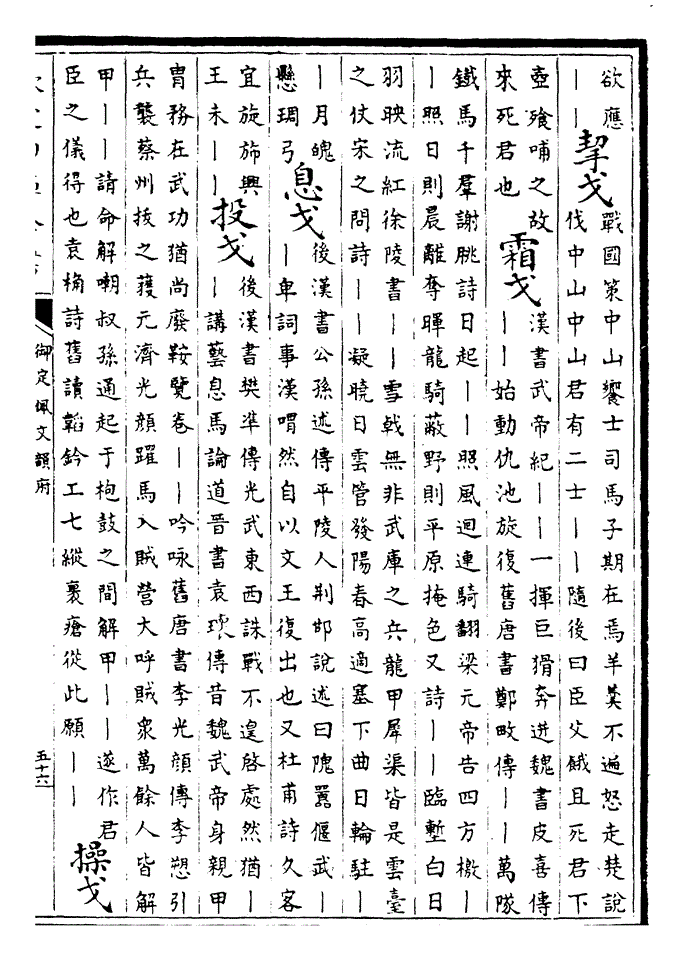 欲應
｜｜
挈戈
戰國策中山饗士司馬子期在焉羊羹不遍怒走楚說
伐中山中山君有二士｜｜隨後曰臣父餓且死君下
壺飱哺之故
來死君也
霜戈
漢書武帝紀｜｜一揮巨猾奔迸魏書皮喜傳
｜｜始動仇池旋復舊唐書鄭畋傳｜｜萬隊
鐵馬千羣謝朓詩日起｜｜照風迴連騎翻梁元帝告四方檄｜
｜照日則晨離奪暉龍騎蔽野則平原掩色又詩｜｜臨塹白日
羽映流紅徐陵書｜｜雪戟無非武庫之兵龍甲犀渠皆是雲臺
之仗宋之問詩｜｜凝曉日雲管發陽春高適塞下曲日輪駐｜
｜月魄
懸琱弓
息戈
後漢書公孫述傳平陵人荆邯說述曰隗囂偃武｜
｜卑詞事漢喟然自以文王復出也又杜甫詩久客
宜旋斾興
王未｜｜
投戈
後漢書樊準傳光武東西誅戰不遑啓處然猶｜
｜講藝息馬論道晉書袁瓌傳昔魏武帝身親甲
胄務在武功猶尚廢鞍覽卷｜｜吟咏舊唐書李光顔傳李愬引
兵襲蔡州拔之獲元濟光顔躍馬入賊營大呼賊衆萬餘人皆解
甲｜｜請命解嘲叔孫通起于枹鼓之間解甲｜｜遂作君
臣之儀得也袁桷詩舊讀韜鈐工七縱裹瘡從此願｜｜
操戈
御定佩文韻府
五十六